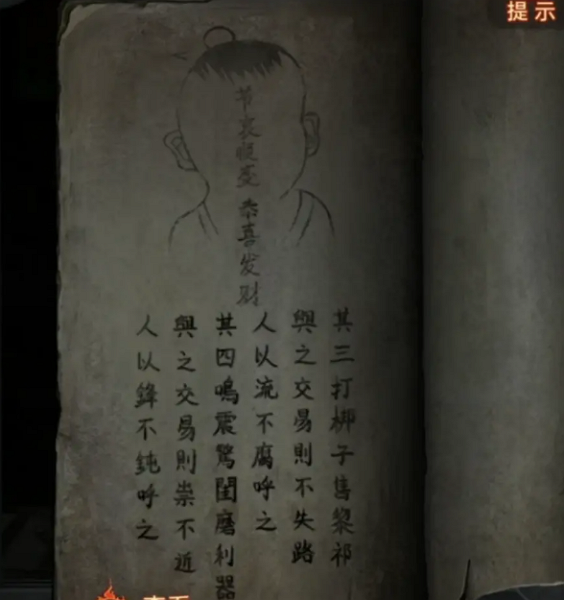 提示
节哀順변 恭喜发财
其三打梆子售黎祁
與之交易則不失路
人以流不腐呼之
其四鳴震驚閨磨利器
與之交易則祟不近
人以鋒不鈍呼之